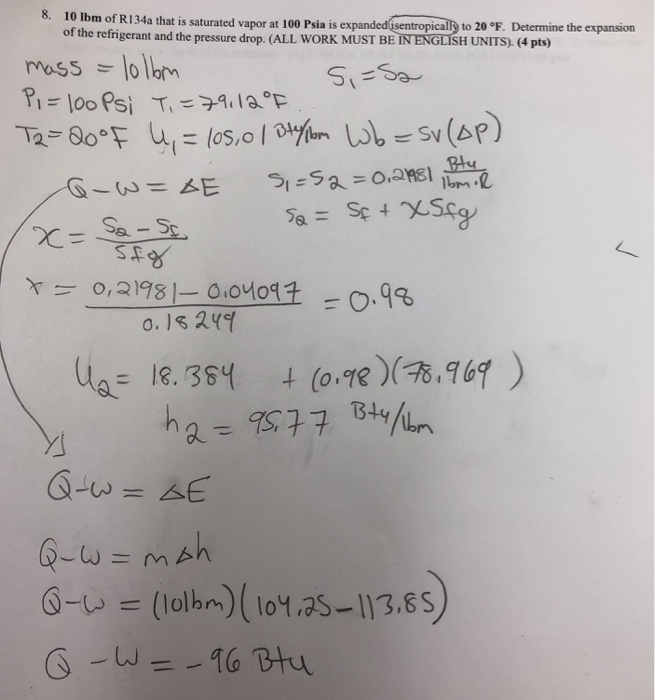 8. 10 lbm of R134a that is saturated vapor at 100 Psia is expanded isentropically to 20 °F. Determine the expansion
of the refrigerant and the pressure drop. (ALL WORK MUST BE IN ENGLISH UNITS). (4 pts)
mass = 10 lbm S₁ = S₂
P₁ = 100 Psi T₁ = 79.12°F
T₂ = 20°F U₁ = 105.01 Btu/lbm Wb = Sv(ΔP)
Q - W = ΔE S₁ = S₂ = 0.21981 Btu/lbm·R
S₂ = Sf + xSfg
x = S₂ - Sf / Sfg
x = 0.21981 - 0.04097 / 0.18249 = 0.98
U₂ = 18.384 + (0.98)(78.969)
h₂ = 95.77 Btu/lbm
Q - W = ΔE
Q - W = mΔh
Q - W = (10lbm)(104.25 - 113.85)
Q - W = -96 Btu